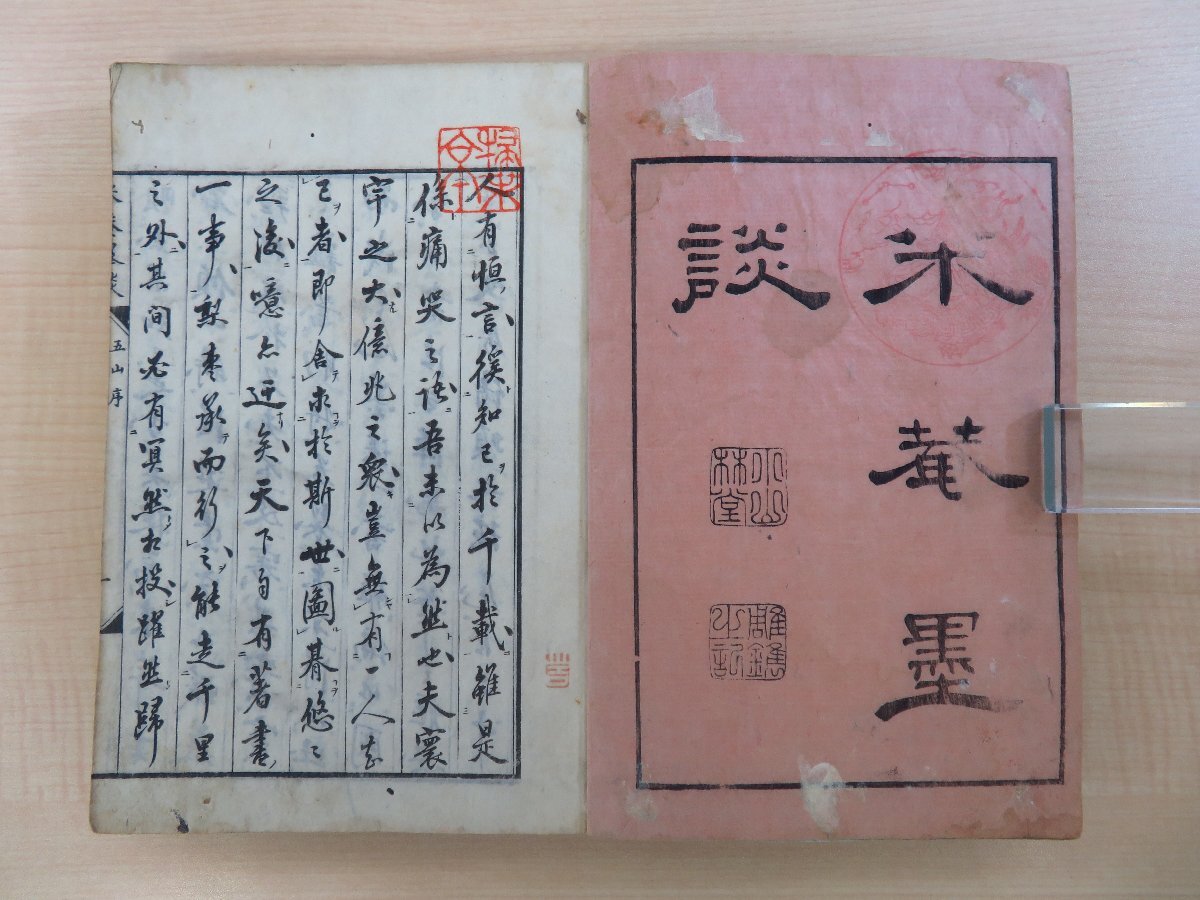 米菴墨
談
小山林堂
雕鐫之記
人有恒言徯知己於千載雖是
係痛哭之語吾未以為然也夫寰
宇之大億兆之衆豈無有一人知
己者即舎求於斯世圖朞悠〻
之後噫亦迂矣天下自有著書
一事梨棗承而行之能走千里
之外其間必有冥然相投躍然歸
五山序